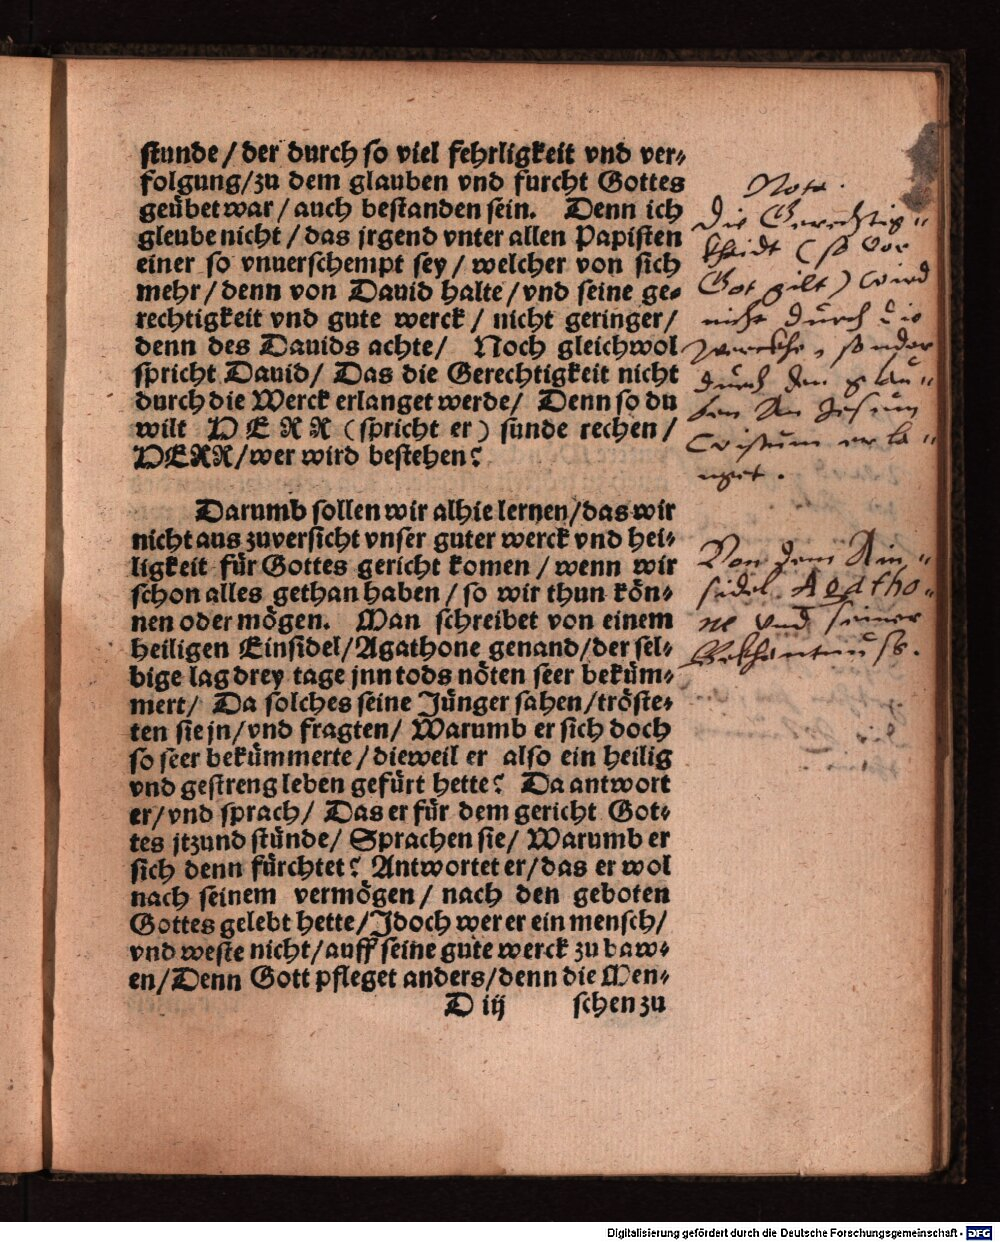 stunde / der durch so viel fehrligkeit vnd ver⸗
folgung/zu dem glauben vnd furcht Gottes
geübet war / auch bestanden sein. Denn ich
gleube nicht / das jrgend vnter allen Papisten
einer so vnuerschempt sey / welcher von sich
mehr / denn von Dauid halte / vnd seine ge⸗
rechtigkeit vnd gute werck / nicht geringer /
denn des Dauids achte / Noch gleichwol
spricht Dauid / Das die Gerechtigkeit nicht
durch die Werck erlanget werde / Denn so du
wilt HERR (spricht er) sunde rechen /
HERR / wer wird bestehen?
Darumb sollen wir alhie lernen / das wir
nicht aus zuversicht vnser guter werck vnd hei⸗
ligkeit für Gottes gericht komen / wenn wir
schon alles gethan haben / so wir thun kön⸗
nen oder mögen. Man schreibet von einem
heiligen Einsidel / Agathone genand / der sel⸗
bige lag drey tage jnn tods nöten seer beküm⸗
mert / Da solches seine Jünger sahen / tröste⸗
ten sie jn / vnd fragten / Warumb er sich doch
so seer bekümmerte / dieweil er also ein heilig
vnd gestreng leben gefürt hette? Da antwort
er / vnd sprach / Das er für dem gericht Got⸗
tes jtzund stünde / Sprachen sie / Warumb er
sich denn fürchtet? Antwortet er / das er wol
nach seinem vermögen / nach den geboten
Gottes gelebt hette / Jdoch wer er ein mensch /
vnd weste nicht / auff seine gute werck zu baw⸗
en / Denn Gott pfleget anders / denn die Men⸗
D iij schen zu
Nota.
Die Gerechtig⸗
kheidt (so vor
Got gilt) wird
nicht durch die
werckhe, sonder
durch den glau⸗
ben An Jesum
Cristum erla⸗
nget.
Von dem Ain⸗
sidel Agatho⸗
ne vnd seiner
Bekhantnuss.
Digitalisierung gefördert durch die Deutsche Forschungsgemeinschaft - DFG